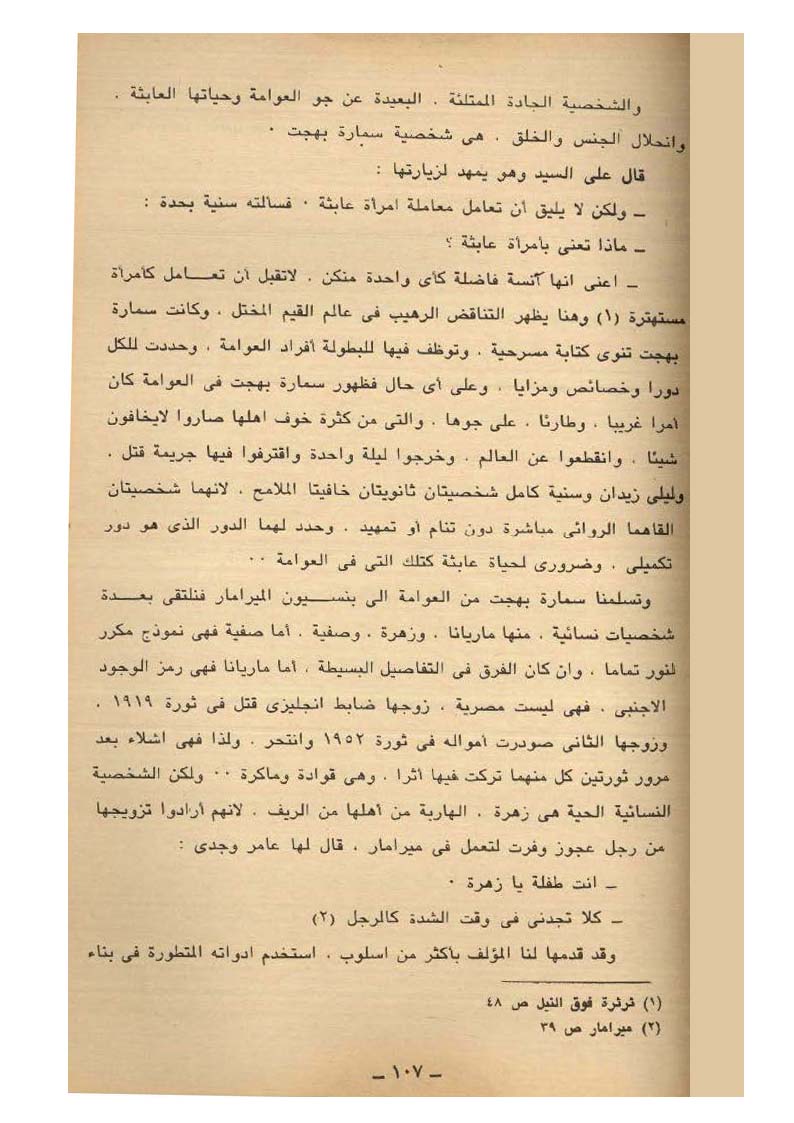 والشخصية الجادة الممتلئة ، البعيدة عن جو العوامة وحياتها العابثة ،
وانحلال الجنس والخلق ، هى شخصية سمارة بهجت ٠
قال على السيد وهو يمهد لزيارتها :
ــ ولكن لا يليق أن تعامل معاملة امرأة عابثة ٠ فسألته سنية بحدة :
ــ ماذا تعنى بأمرأة عابثة ؟
ــ اعنى انها آنسة فاضلة كأى واحدة منكن ، لاتقبل أن تعـــامل كأمرأة
مستهترة (١) وهنا يظهر التناقض الرهيب فى عالم القيم المختل ، وكانت سمارة
بهجت تنوى كتابة مسرحية ، وتوظف فيها للبطولة أفراد العوامة ، وحددت للكل
دورا وخصائص ومزايا ، وعلى أى حال فظهور سمارة بهجت فى العوامة كان
أمرا غريبا ، وطارئا ، على جوها ، والتى من كثرة خوف اهلها صاروا لايخافون
شيئا ، وانقطعوا عن العالم ، وخرجوا ليلة واحدة واقترفوا فيها جريمة قتل ،
وليلى زيدان وسنية كامل شخصيتان ثانويتان خافيتا الملامح ، لانهما شخصيتان
القاهما الروائى مباشرة دون تنام أو تمهيد ، وحدد لهما الدور الذى هو دور
تكميلى ، وضرورى لحياة عابثة كتلك التى فى العوامة ٠٠
وتسلمنا سمارة بهجت من العوامة الى بنســيون الميرامار فنلتقى بعــدة
شخصيات نسائية ، منها ماريانا ، وزهرة ، وصفية ، أما صفية فهى نموذج مكرر
لنور تماما ، وان كان الفرق فى التفاصيل البسيطة ، أما ماريانا فهى رمز الوجود
الاجنبى ، فهى ليست مصرية ، زوجها ضابط انجليزى قتل فى ثورة ١٩١٩ ،
وزوجها الثانى صودرت أمواله فى ثورة ١٩٥٢ وانتحر ، ولذا فهى اشلاء بعد
مرور ثورتين كل منهما تركت فيها أثرا ، وهى قوادة وماكرة ٠٠ ولكن الشخصية
النسائية الحية هى زهرة ، الهاربة من أهلها من الريف ، لانهم أرادوا تزويجها
من رجل عجوز وفرت لتعمل فى ميرامار ، قال لها عامر وجدى :
ــ انت طفلة يا زهرة ٠
ــ كلا تجدنى فى وقت الشدة كالرجل (٢)
وقد قدمها لنا المؤلف بأكثر من اسلوب ، استخدم ادواته المتطورة فى بناء
(١) ثرثرة فوق النيل ص ٤٨
(٢) ميرامار ص ٣٩
ــ ١٠٧ ــ